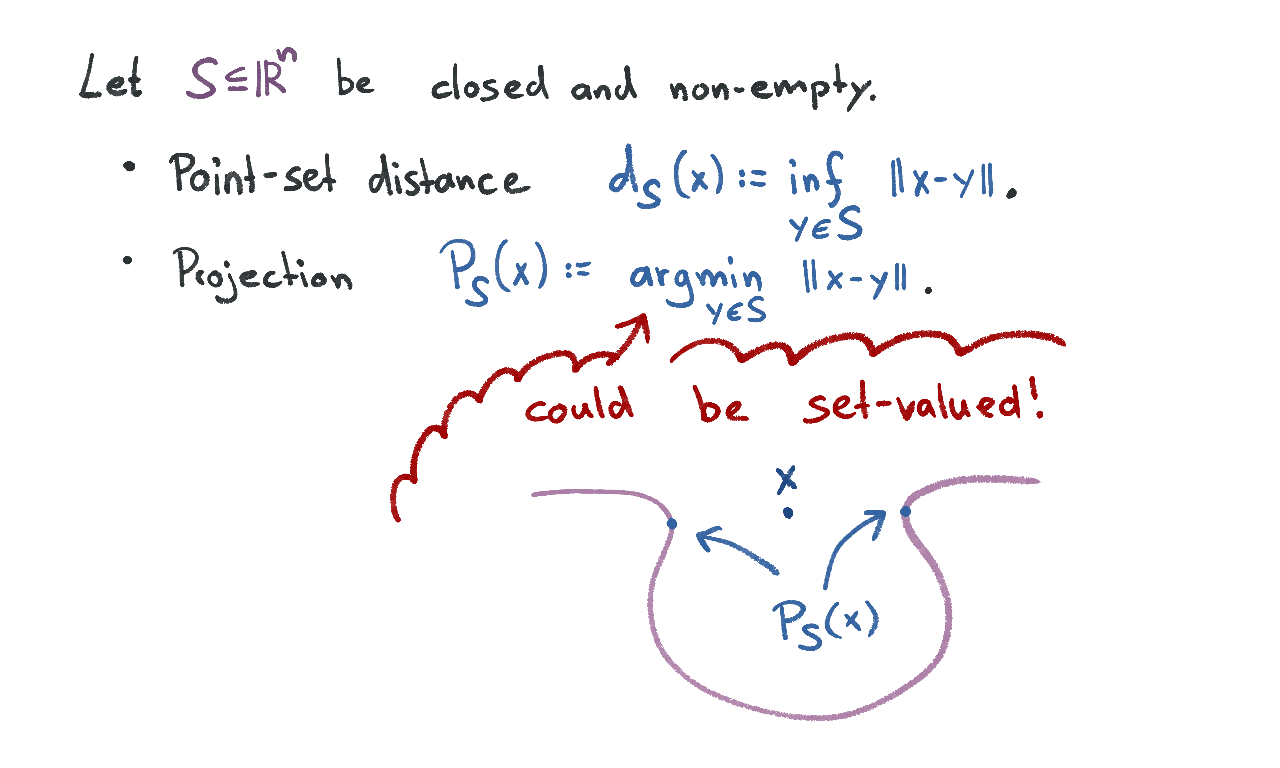 Let S ⊆ ℝⁿ be closed and non-empty.
• Point-set distance d_S(x) := inf_{y∈S} ‖x-y‖.
• Projection P_S(x) := argmin_{y∈S} ‖x-y‖.
could be set-valued!
x
P_S(x)